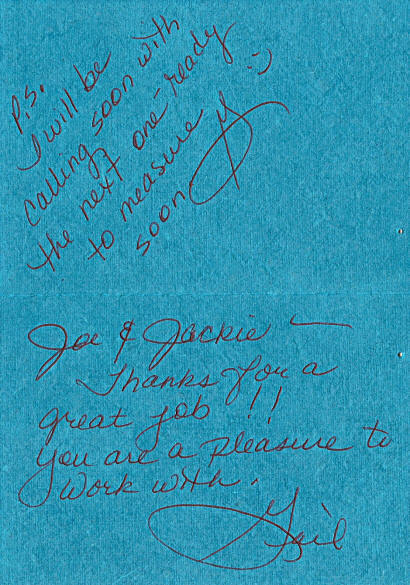 P.S.
I will be
calling soon with
the next one-ready
to measure
soon :-)
G
Joe & Jackie —
Thanks for a
great job !!
You are a pleasure to
work with.
Gail